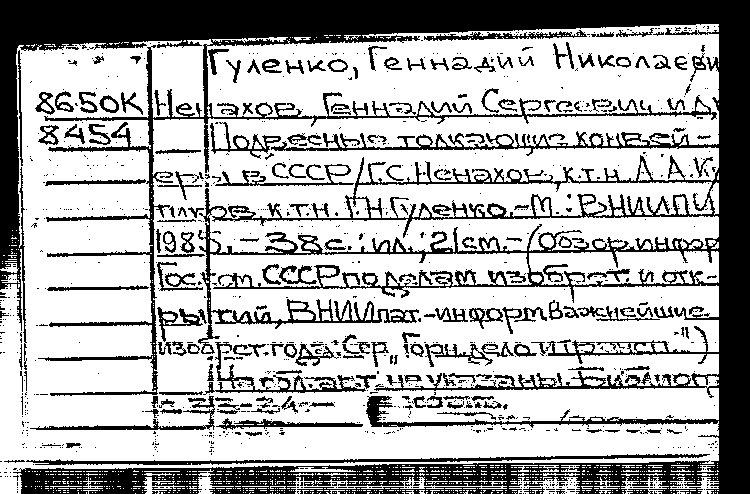 Гуленко, Геннадий Николаеви
8650К Ненахов, Геннадий Сергеевич и др
8454 Подвесные толкающие конвей-
еры в СССР/Г.С. Ненахов, к.т.н. Л.А.К
пиков, к.т.н. Г.Н.Гуленко.-М.: ВНИИПИ
1985. - 38с.: ил.; 21см.-(Обзор.информ
Гос.ком. СССР по делам изобрет. и отк-
рытий, ВНИИпат.-информ Важнейшие
изобрет.года: Сер. „Горн.дело и трансп.")
На обл. авт. не указаны. Библиогр
с. 23-24.-